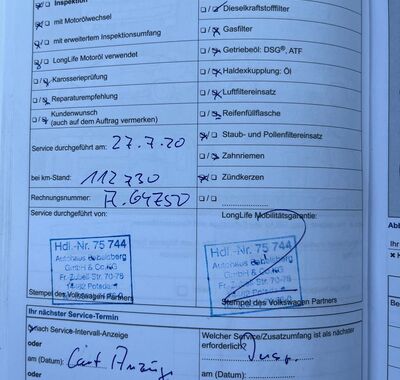 Inspektion
Dieselkraftstofffilter
mit Motorölwechsel
Gasfilter
mit erweitertem Inspektionsumfang
Getriebeöl: DSG®, ATF
LongLife Motoröl verwendet
Haldexkupplung: Öl
Karosserieprüfung
Luftfiltereinsatz
Reparaturempfehlung
Reifenfüllflasche
Kundenwunsch
(auch auf dem Auftrag vermerken)
Staub- und Pollenfiltereinsatz
Service durchgeführt am: 27.7.20
Zahnriemen
bei km-Stand: 112730
Zündkerzen
Rechnungsnummer: R.64750
Service durchgeführt von:
LongLife Mobilitätsgarantie:
Hdl.-Nr. 75 744
Autohaus Babelsberg
GmbH & Co.KG
Fr.-Zubeil Str. 70-78
14482 Potsdam
Hdl.-Nr. 75 744
Autohaus Babelsberg
GmbH & Co.KG
Fr.-Zubeil Str. 70-78
14482 Potsdam
Stempel des Volkswagen Partners
Stempel des Volkswagen Partners
Ihr nächster Service-Termin
nach Service-Intervall-Anzeige
Welcher Service/Zusatzumfang ist als nächster
erforderlich?
oder
am (Datum): laut Anzeige
Insp.
oder
am (Datum):